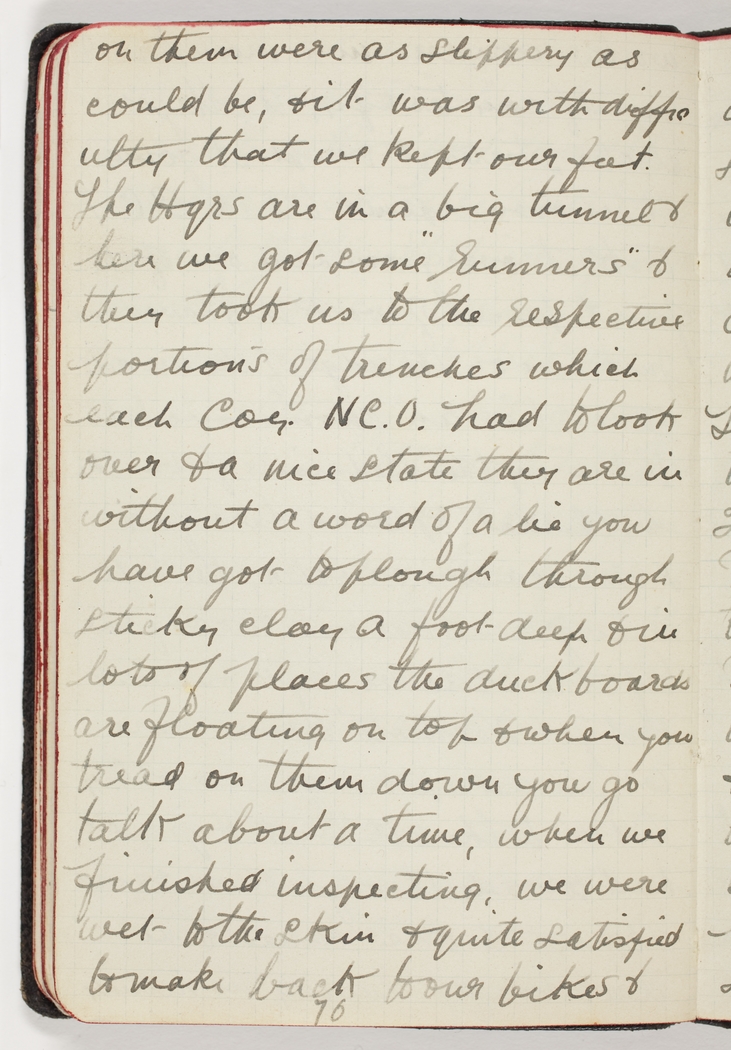 on them were as slippery as
could be, & it was with diffic
ulty that we kept our feet.
The Hqrs are in a big tunnel &
here we got some "runners" &
they took us to the respective
portions of trenches which
each Coy. N.C.O. had to look
over & a nice state they are in
without a word of a lie you
have got to plough through
sticky clay a foot deep & in
lots of places the duck boards
are floating on top & when you
tread on them down you go
talk about a time, when we
finished inspecting, we were
wet to the skin & quite satisfied
to make back to our bikes &
76